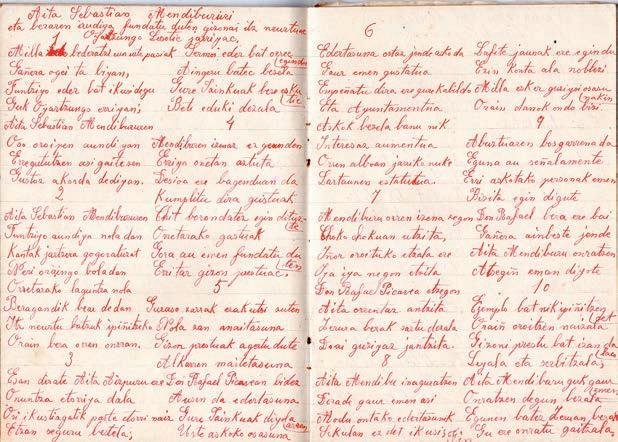 Aita Sebastian Mendibururi
eta beraren irudiya fundatu duten gizonai itz neurtuac
Oyartzungo Lexotic jarriyac,
1
Milla bederatzi un urte pasiak
Ganera ogei ta biyan,
Funtziyo eder bat ikusi degu
Guk Oyartzungo erriyan,
Aita Sebastian Mendibururen
Oso oroipen aundiyan
Erregutzen asi gaitezen
Gustoz akorda dediyan.
2
Aita Sebastian Mendibururen
Funtziyo aundiya nola dan
Kantak jartzera gogoratu zat
Neri oraingo boladan
Orretarako laguntza nola
Beragandik bear dedan
Itz neurtu batzuk ipiñitzeko
Orain bera orren onrran.
3
Esan derate Aita Aizpuru ere
Onuntza etorriya dala
Oñ ikustiagatik poste etorri naiz
Etzan seguru bestela,
Sermoi eder bat orrec egindu
Aingeru batec bezela
Gure Jainkuak bere eskutic
Beti eduki dezala
4
Mendiburen izenaz ier geunden
Eriya onetan astuta
Desioa ere bagenduan da
Kumplitu dira gustuak.
Chit berondatez egin dituzte
Onetarako gastuak
Gora au emen fundatu duten
Eritar gizon prestuac,
5
Guraso zarrak erakutsi zuten
Nola zan anaitasuna
Gizon prestuak agertu dute
Alkarren maitetasuna
Don Rafael Picavean bidez
Auxen da ederlasuna
Gure Jainkuak diyola
Urte askoko osasuna
6
Edertasuna ortaz jende asko da
Gaur emen gustatua
Empeñatu dira ere gure kabildo
Eta Ayuntamentua
Askok bezela banu nik
Interesaz aumentua
Orren alboan jarko nuke
Lartaunen estatutua.
7
Mendiburu orren izena zegon
Choko chokuan utzita,
Iñor oroituko etzala ere
Ia iya negon etsita
Don Rafael Picavea etzegon
Aita orrentzat antzita
Zerura berak sartu derala
Doai guziyaz jantzita.
8
Aita Mendibu inaguratzen
Gerade gaur emen asi
Modu ontako ederlasunik
Sekulan ez det ik
Lafite jaunak ere egindu
Ezin konta ala nobleri
Milla esker guziyo osasunakin
Orain danok ondo bizi
9
Abuztuaren bosgarrena da
Eguna au señalamente
Erri askotako personak emen
Bisita egin digute
Don Rafael bera ere bai
Gañera ainberte jende
Aita Mendiburu onratzen
Abegiñ eman digote
10
Ejemplo bat nik ipiñitzen det
Orain oroitzen naizela
Gizona prestu bat izan da
Leyala eta serbitzala,
Aita Mendiburu guk gaur emen
Onratzen degun bezala
Egunen batez Zeruan berak
Gu ere onratu gaitzala,